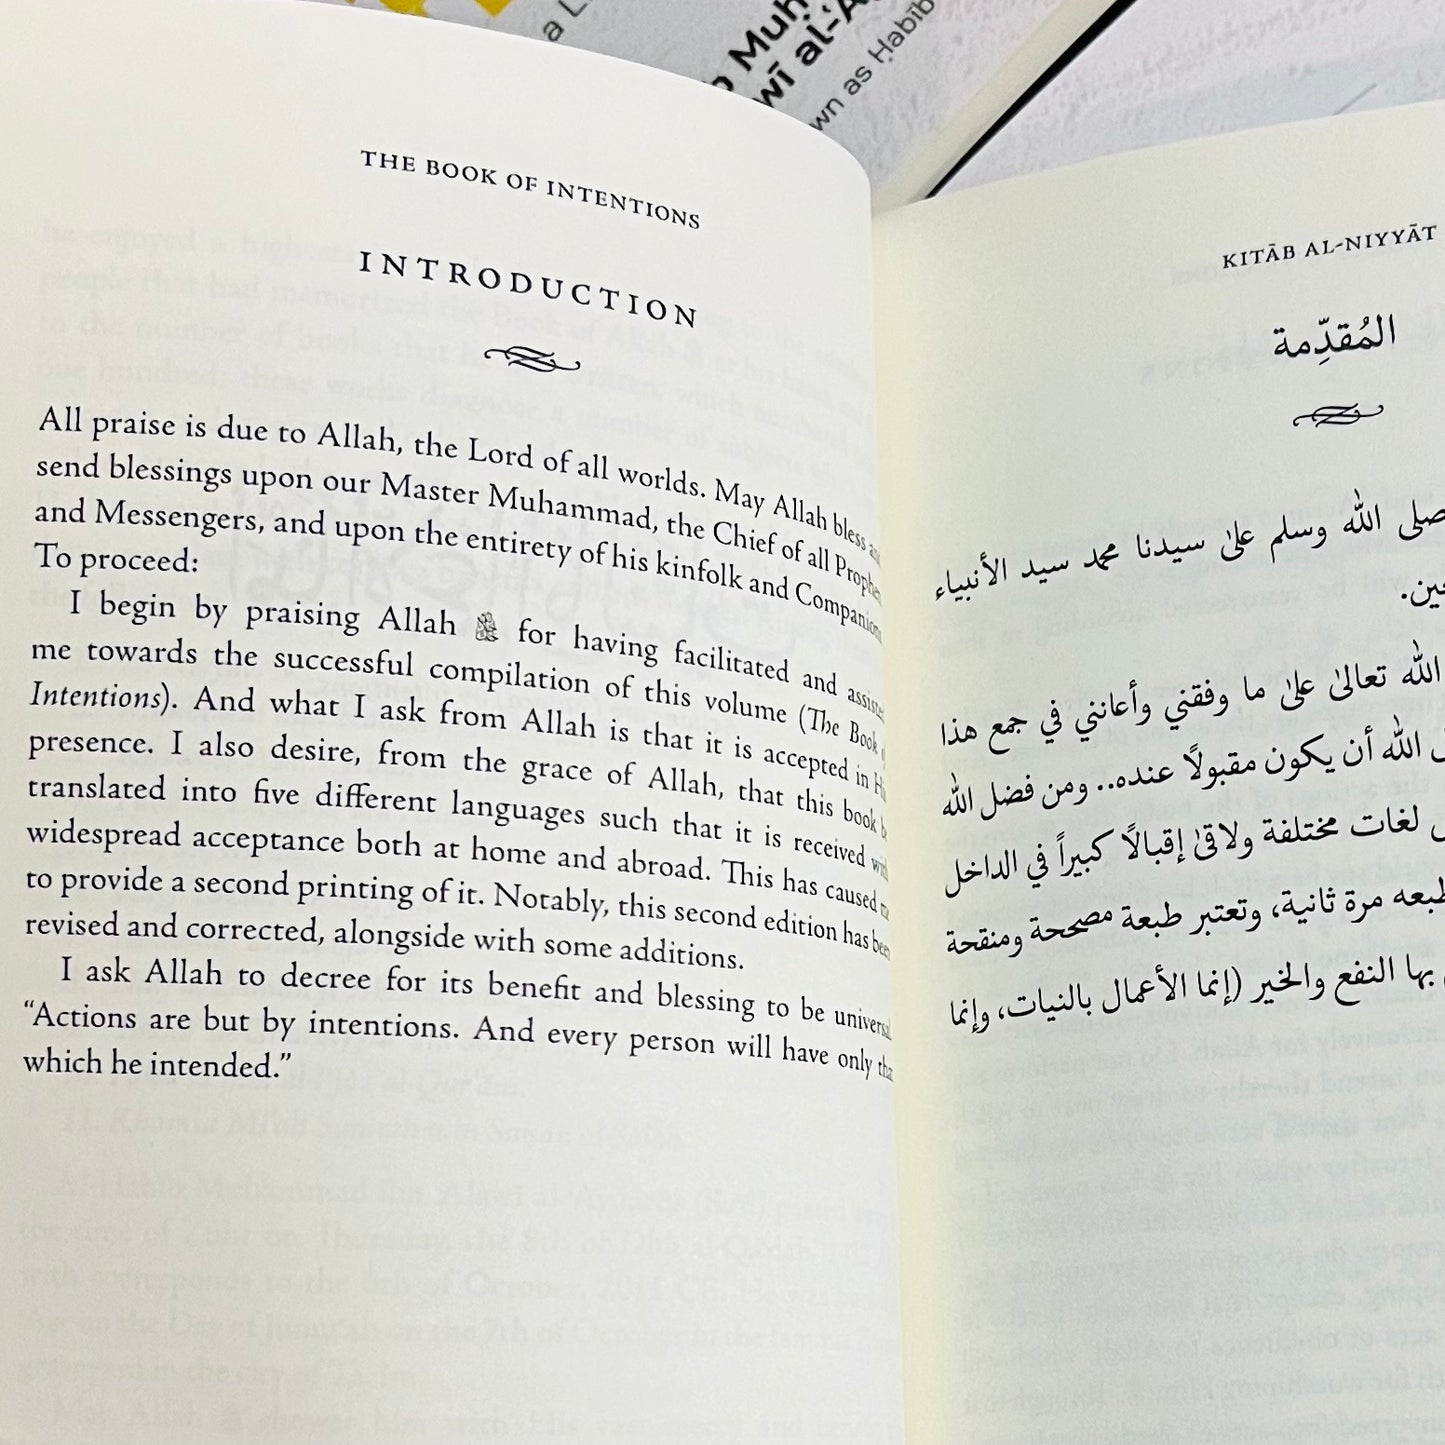 a
Muḥ
wī al-ʿA
wn as Ḥabīb
THE BOOK OF INTENTIONS
INTRODUCTION
All praise is due to Allah, the Lord of all worlds. May Allah bless and
send blessings upon our Master Muhammad, the Chief of all Prophets
and Messengers, and upon the entirety of his kinfolk and Companions.
To proceed:
I begin by praising Allah ﷻ for having facilitated and assisted
me towards the successful compilation of this volume (The Book of
Intentions). And what I ask from Allah is that it is accepted in His
presence. I also desire, from the grace of Allah, that this book be
translated into five different languages such that it is received with
widespread acceptance both at home and abroad. This has caused me
to provide a second printing of it. Notably, this second edition has been
revised and corrected, alongside with some additions.
I ask Allah to decree for its benefit and blessing to be universal.
“Actions are but by intentions. And every person will have only that
which he intended.”
KITĀB AL-NIYYĀT
المُقدِّمة
صلى الله وسلم علىٰ سيدنا محمد سيد الأنبياء
الله تعالىٰ علىٰ ما وفقني وأعانني في جمع هذا
الله أن يكون مقبولًا عنده.. ومن فضل الله
لغات مختلفة ولاقىٰ إقبالًا كبيراً في الداخل
طبعه مرة ثانية، وتعتبر طبعة مصححة ومنقحة
بها النفع والخير (إنما الأعمال بالنيات، وإنما